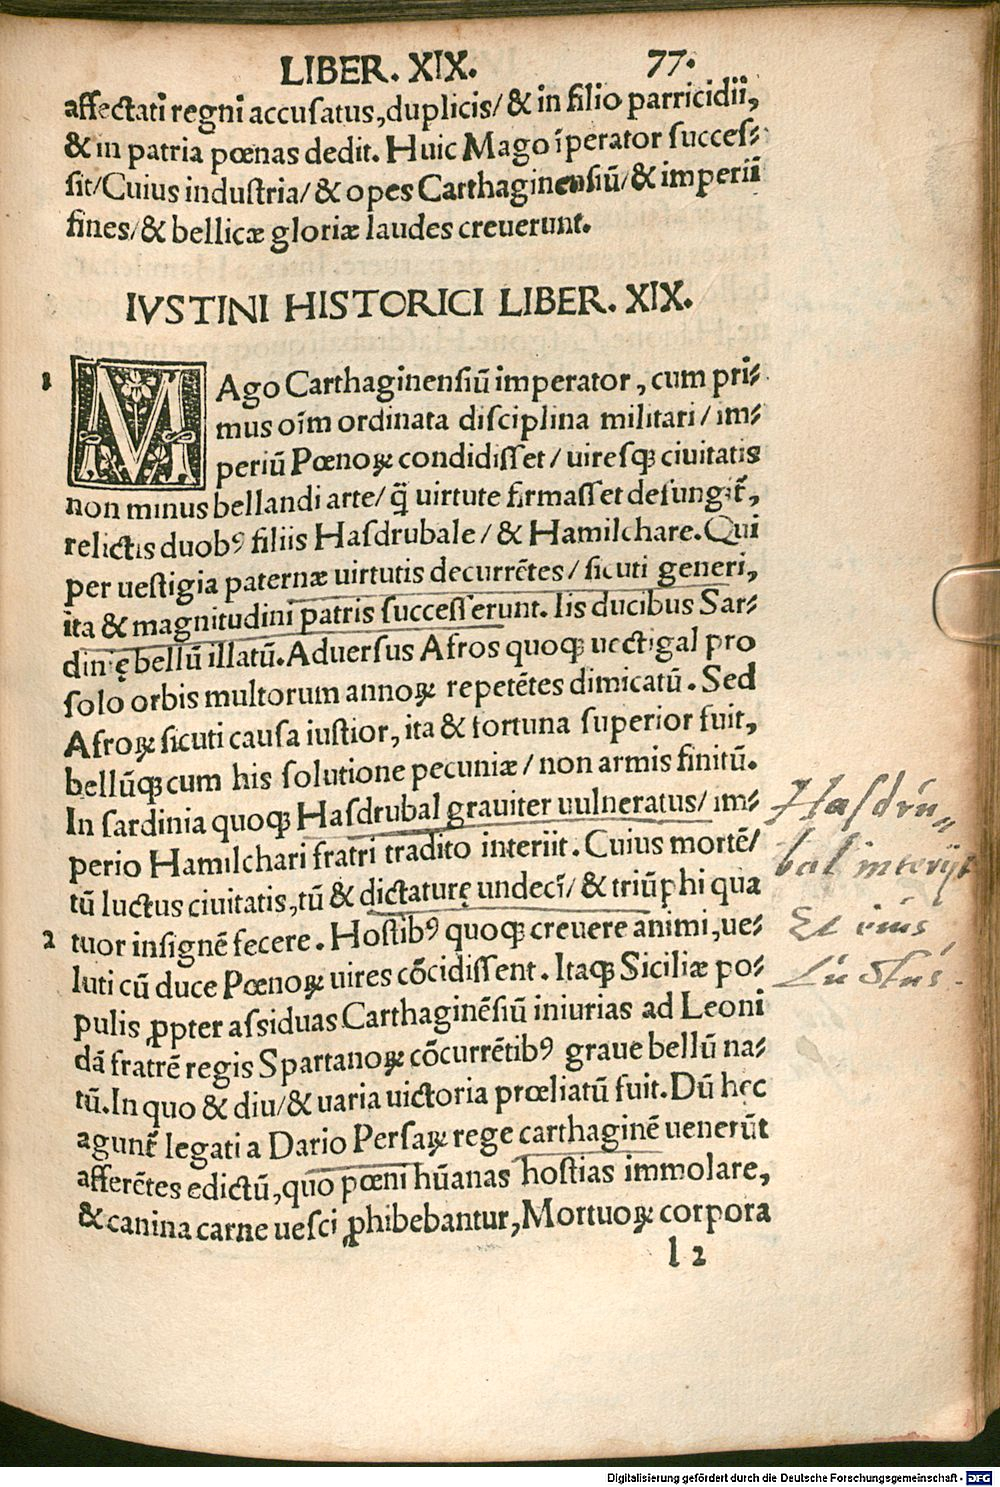 LIBER. XIX. 77.
affectati regni accuſatus, duplicis/ & in filio parricidii,
& in patria pœnas dedit. Huic Mago ĩperator ſucceſ⸗
ſit/ Cuius induſtria/ & opes Carthaginenſiũ/ & imperii
fines/ & bellicæ gloriæ laudes creuerunt.
IVSTINI HISTORICI LIBER. XIX.
1 MAgo Carthaginenſiũ imperator, cum pri⸗
mus oĩm ordinata diſciplina militari/ im⸗
periũ Pœnoꝝ condidiſſet/ uireſqꝫ ciuitatis
non minus bellandi arte/ q̃ uirtute firmaſſet defungit᷑,
relictis duobꝰ filiis Haſdrubale/ & Hamilchare. Qui
per ueſtigia paternæ uirtutis decurrẽtes/ ſicuti generi,
ita & magnitudini patris ſucceſſerunt. Iis ducibus Sar⸗
dinię bellũ illatũ. Aduerſus Afros quoqꝫ uectigal pro
ſolo orbis multorum annoꝝ repetẽtes dimicatũ. Sed
Afroꝝ ſicuti cauſa iuſtior, ita & fortuna ſuperior fuit,
bellũqꝫ cum his ſolutione pecuniæ/ non armis finitũ.
In ſardinia quoqꝫ Haſdrubal grauiter uulneratus/ im⸗
perio Hamilchari fratri tradito interiit. Cuius mortẽ/
tũ luctus ciuitatis, tũ & dictaturę undecĩ/ & triũphi qua
2 tuor inſignẽ fecere. Hoſtibꝰ quoqꝫ creuere animi, ue⸗
luti cũ duce Pœnoꝝ uires cõcidiſſent. Itaqꝫ Siciliæ po⸗
pulis ꝓpter aſſiduas Carthaginẽſiũ iniurias ad Leoni
dã fratrẽ regis Spartanoꝝ cõcurrẽtibꝰ graue bellũ na⸗
tũ. In quo & diu/ & uaria uictoria prœliatũ fuit. Dũ hęc
agunt᷑ legati a Dario Perſaꝝ rege carthaginẽ uenerũt
afferẽtes edictũ, quo pœni hũanas hoſtias immolare,
& canina carne ueſci ꝓhibebantur, Mortuoꝝ corpora
l 2
Haſdru⸗
bal interijt
Et eius
Luctus.
Digitalisierung gefördert durch die Deutsche Forschungsgemeinschaft - DFG